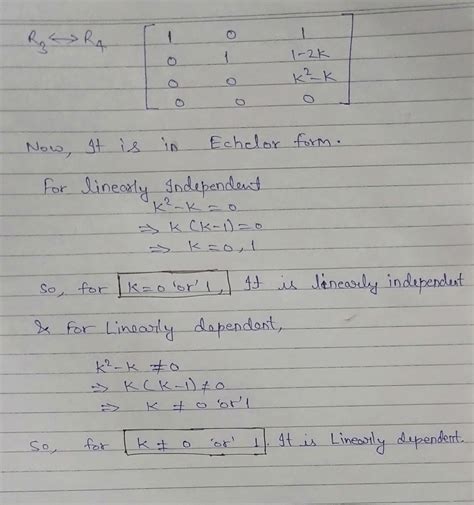 R3 ↔ R4
1 0 1
0 1 1-2K
0 0 K²-K
0 0 0
Now, It is in Echelor form.
For linearly Independent
K²-K = 0
⇒ K(K-1)=0
⇒ K=0,1
So, for K=0 'or' 1, It is linearly independent
& for Linearly dependent,
K²-K ≠ 0
⇒ K(K-1) ≠ 0
⇒ K ≠ 0 'or' 1
So, for K ≠ 0 'or' 1. It is Linearly dependent.